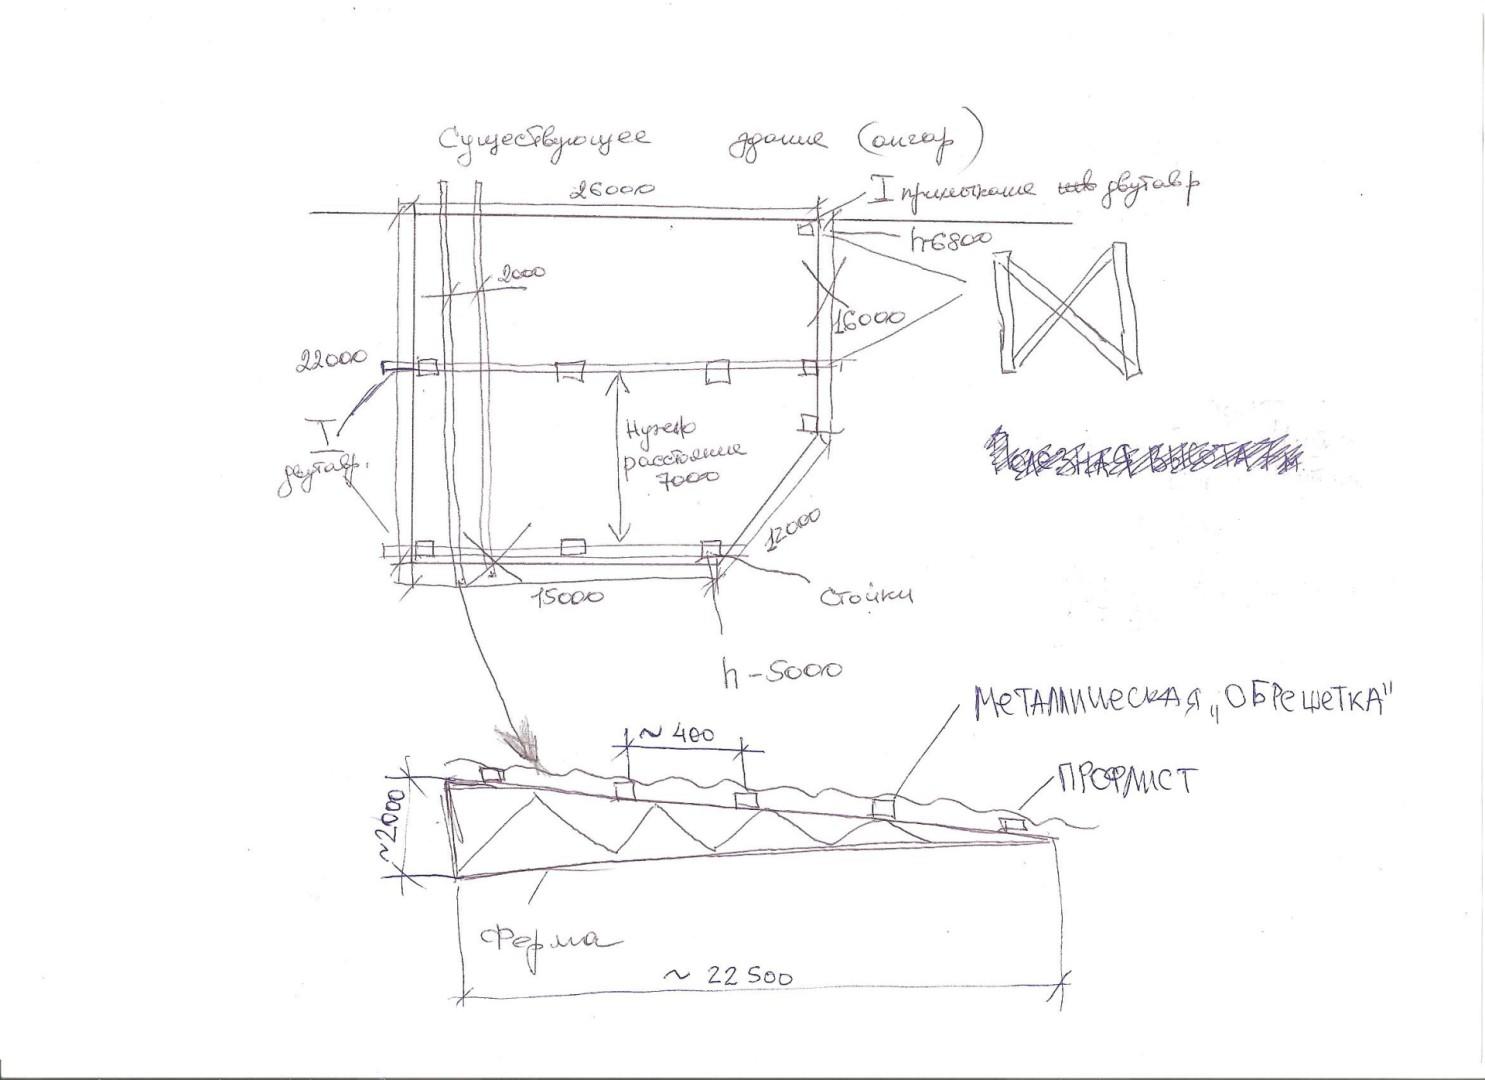 Существующее здание (ангар)
26000
I примыкание двутавр
h-6800
2000
16000
22000
Нужно
расстояние
7000
I
двутавр.
12000
15000
стойки
h-5000
МЕТАЛЛИЧЕСКАЯ „ОБРЕШЕТКА"
~ 400
ПРОФЛИСТ
~2000
Ферма
~ 22 500